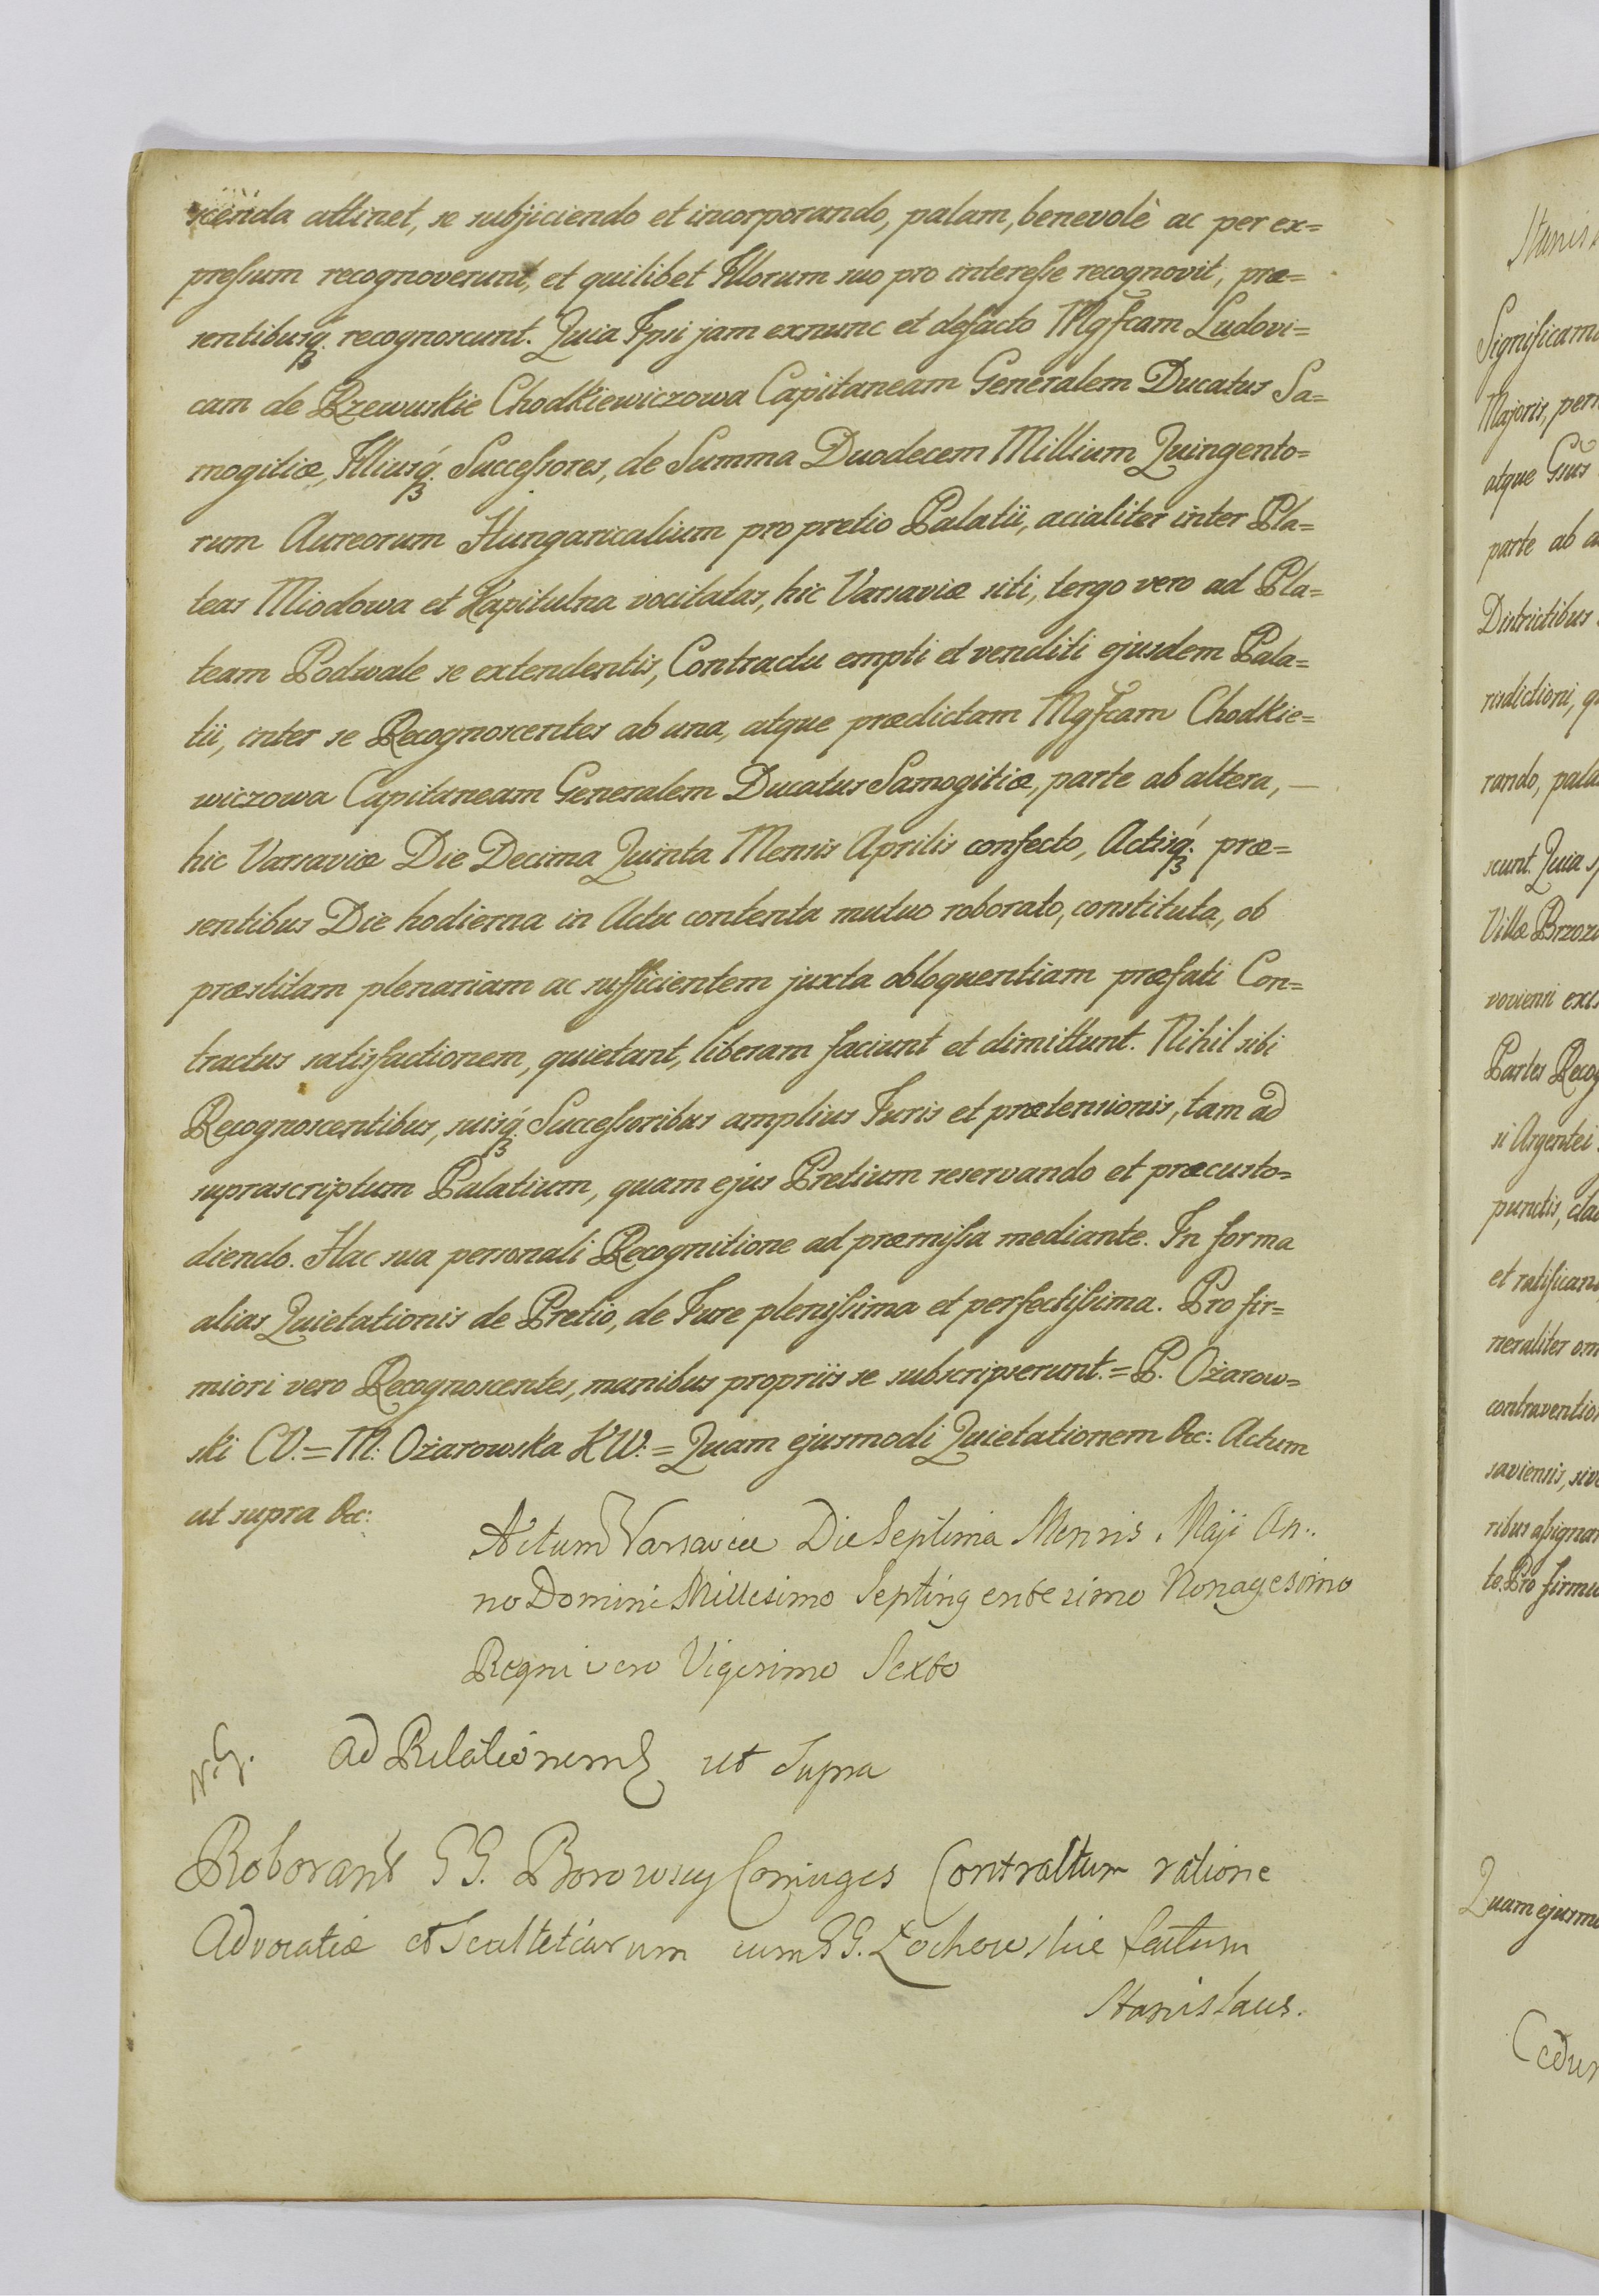 scenda attinet, se subjiciendo et incorporando, palam, benevolè ac per ex=
preſsum recognoverunt, et quilibet Illorum suo pro intereſse recognovit, præ=
sentibusq́ꝫ recognoscunt. Quia Ipsi jam exnunc et defacto Mgfcam Ludovi=
cam de Rzewuskie Chodkiewiczowa Capitaneam Generalem Ducatus Sa=
mogitiæ, Illiusq́ꝫ Succeſsores, de Summa Duodecem Millium Quingento=
rum Aureorum Hungaricalium pro pretio Palatii, acialiter inter Pla=
teas Miodowa et Kapitulna vocitatas, hic Varsaviæ siti, tergo vero ad Pla=
team Podwale se extendentis, Contractu empti et venditi ejusdem Pala=
tii, inter se Recognoscentes ab una, atque prædictam Mgfcam Chodkie=
wiczowa Capitaneam Generalem Ducatus Samogitiæ, parte ab altera, —
hic Varsaviæ Die Decima Quinta Mensis Aprilis confecto, Actisq́ꝫ præ=
sentibus Die hodierna in Actu contenta mutuo roborato, constituta, ob
præstitam plenariam ac sufficientem juxta obloquentiam præfati Con=
tractus satisfactionem, quietant, liberam faciunt et dimittunt. Nihil sibi
Recognoscentibus, suisq́ꝫ Succeſsoribus amplius Juris et prætensionis, tam ad
suprascriptum Palatium, quam ejus Pretium reservando et præcusto=
diendo. Hac sua personali Recognitione ad præmiſsa mediante. In forma
alias Quietationis de Pretio, de Jure pleniſsima et perfectiſsima. Pro fir=
miori vero Recognoscentes, manibus propriis se subscripserunt. = P. Ożarow=
ski CV. = M: Ożarowska KW: = Quam ejusmodi Quietationem &c: Actum
ut supra &c:
Actum Varsaviæ Die Septima Mensis Maji An:
no Domini Millesimo Septingentesimo Nonagesimo
Regni vero Vigesimo Sexto
Ad Relationem ut Supra
Roborant GG. Borowscy Coniuges Contractum ratione
Advocatiæ et Scultetiarum cum GG. Łochowskie factum
Stanislaus.
Stanis
Significam
Majoris, per
atque Gsus
parte ab a
Districtibus
risdictioni, q
rando, pala
scunt. Quia
Villæ Brzoz
Partes Recog
si Argentei
punctis, cla
et ratifican
neraliter om
contraventio
saviensis, siv
ribus aſsignan
to. Pro firmio
Quam ejusmo
Cedun